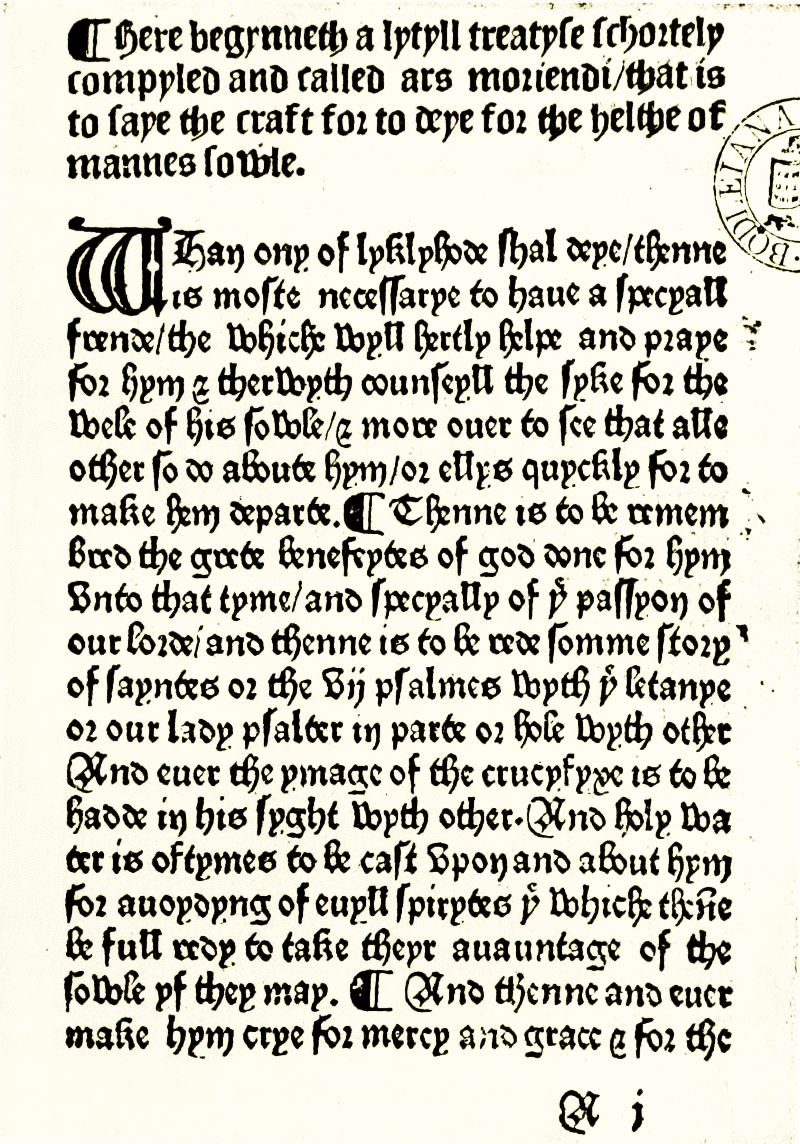 ¶ Here begynneth a lytyll treatyse schortely
compyled and called ars moriendi/that is
to saye the craft for to deye for the helthe of
mannes sowle.
WHan ony of lyklyhode shal deye/thenne
is moste necessarye to haue a specyall
frende/the whiche wyll hertly helpe and praye
for hym & therwyth counseyll the syke for the
wele of his sowle/& more ouer to see that alle
other so do aboute hym/or ellys quyckly for to
make hem departe. ¶ Thenne is to be remem
bred the grete benefeytes of god done for hym
vnto that tyme/and specyally of yͤ passyon of
our lorde/and thenne is to be rede somme story
of sayntes or the vij psalmes wyth yͤ letanye
or our lady psalter in parte or hole wyth other
And euer the ymage of the crucyfyxe is to be
hadde in his syght wyth other. And holy wa
ter is oftymes to be cast vpon and about hym
for auoydyng of euyll spirytes yͭ whiche theñe
be full redy to take theyr auauntage of the
sowle yf they may. ¶ And thenne and euer
make hym crye for mercy and grace & for the
A j
BODLEIANA